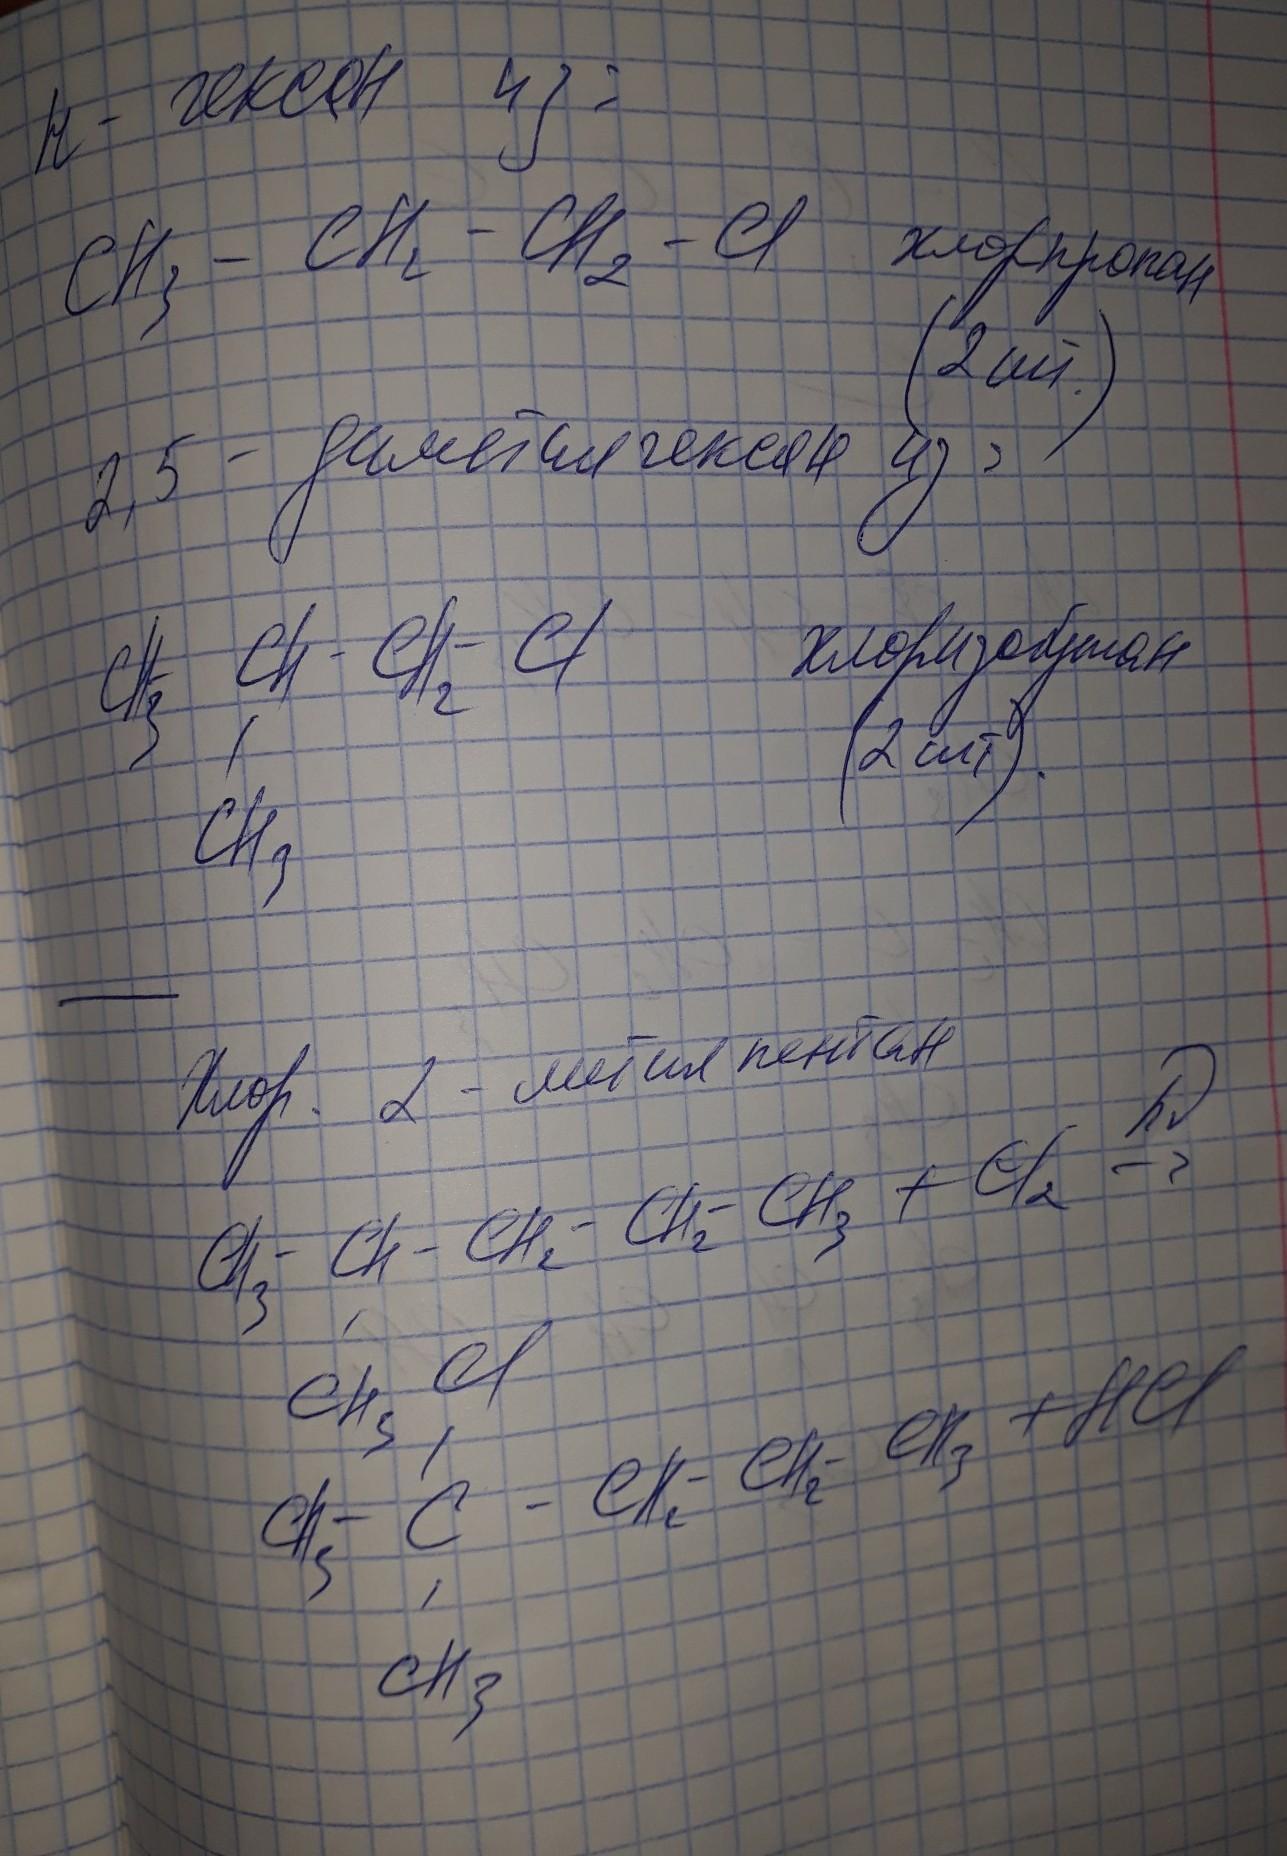 н- гексан из:
CH₃ - CH₂ - CH₂ - Cl хлорпропан
(2 шт.)
2,5 - диметилгексан из:
CH₃ CH - CH₂- Cl хлоризобутан
(2 шт).
CH₃
Хлор. 2 - метилпентан
CH₃- CH - CH₂- CH₂- CH₃ + Cl₂ hν →
CH₃ Cl
CH₃- C - CH₂- CH₂- CH₃ + HCl
CH₃